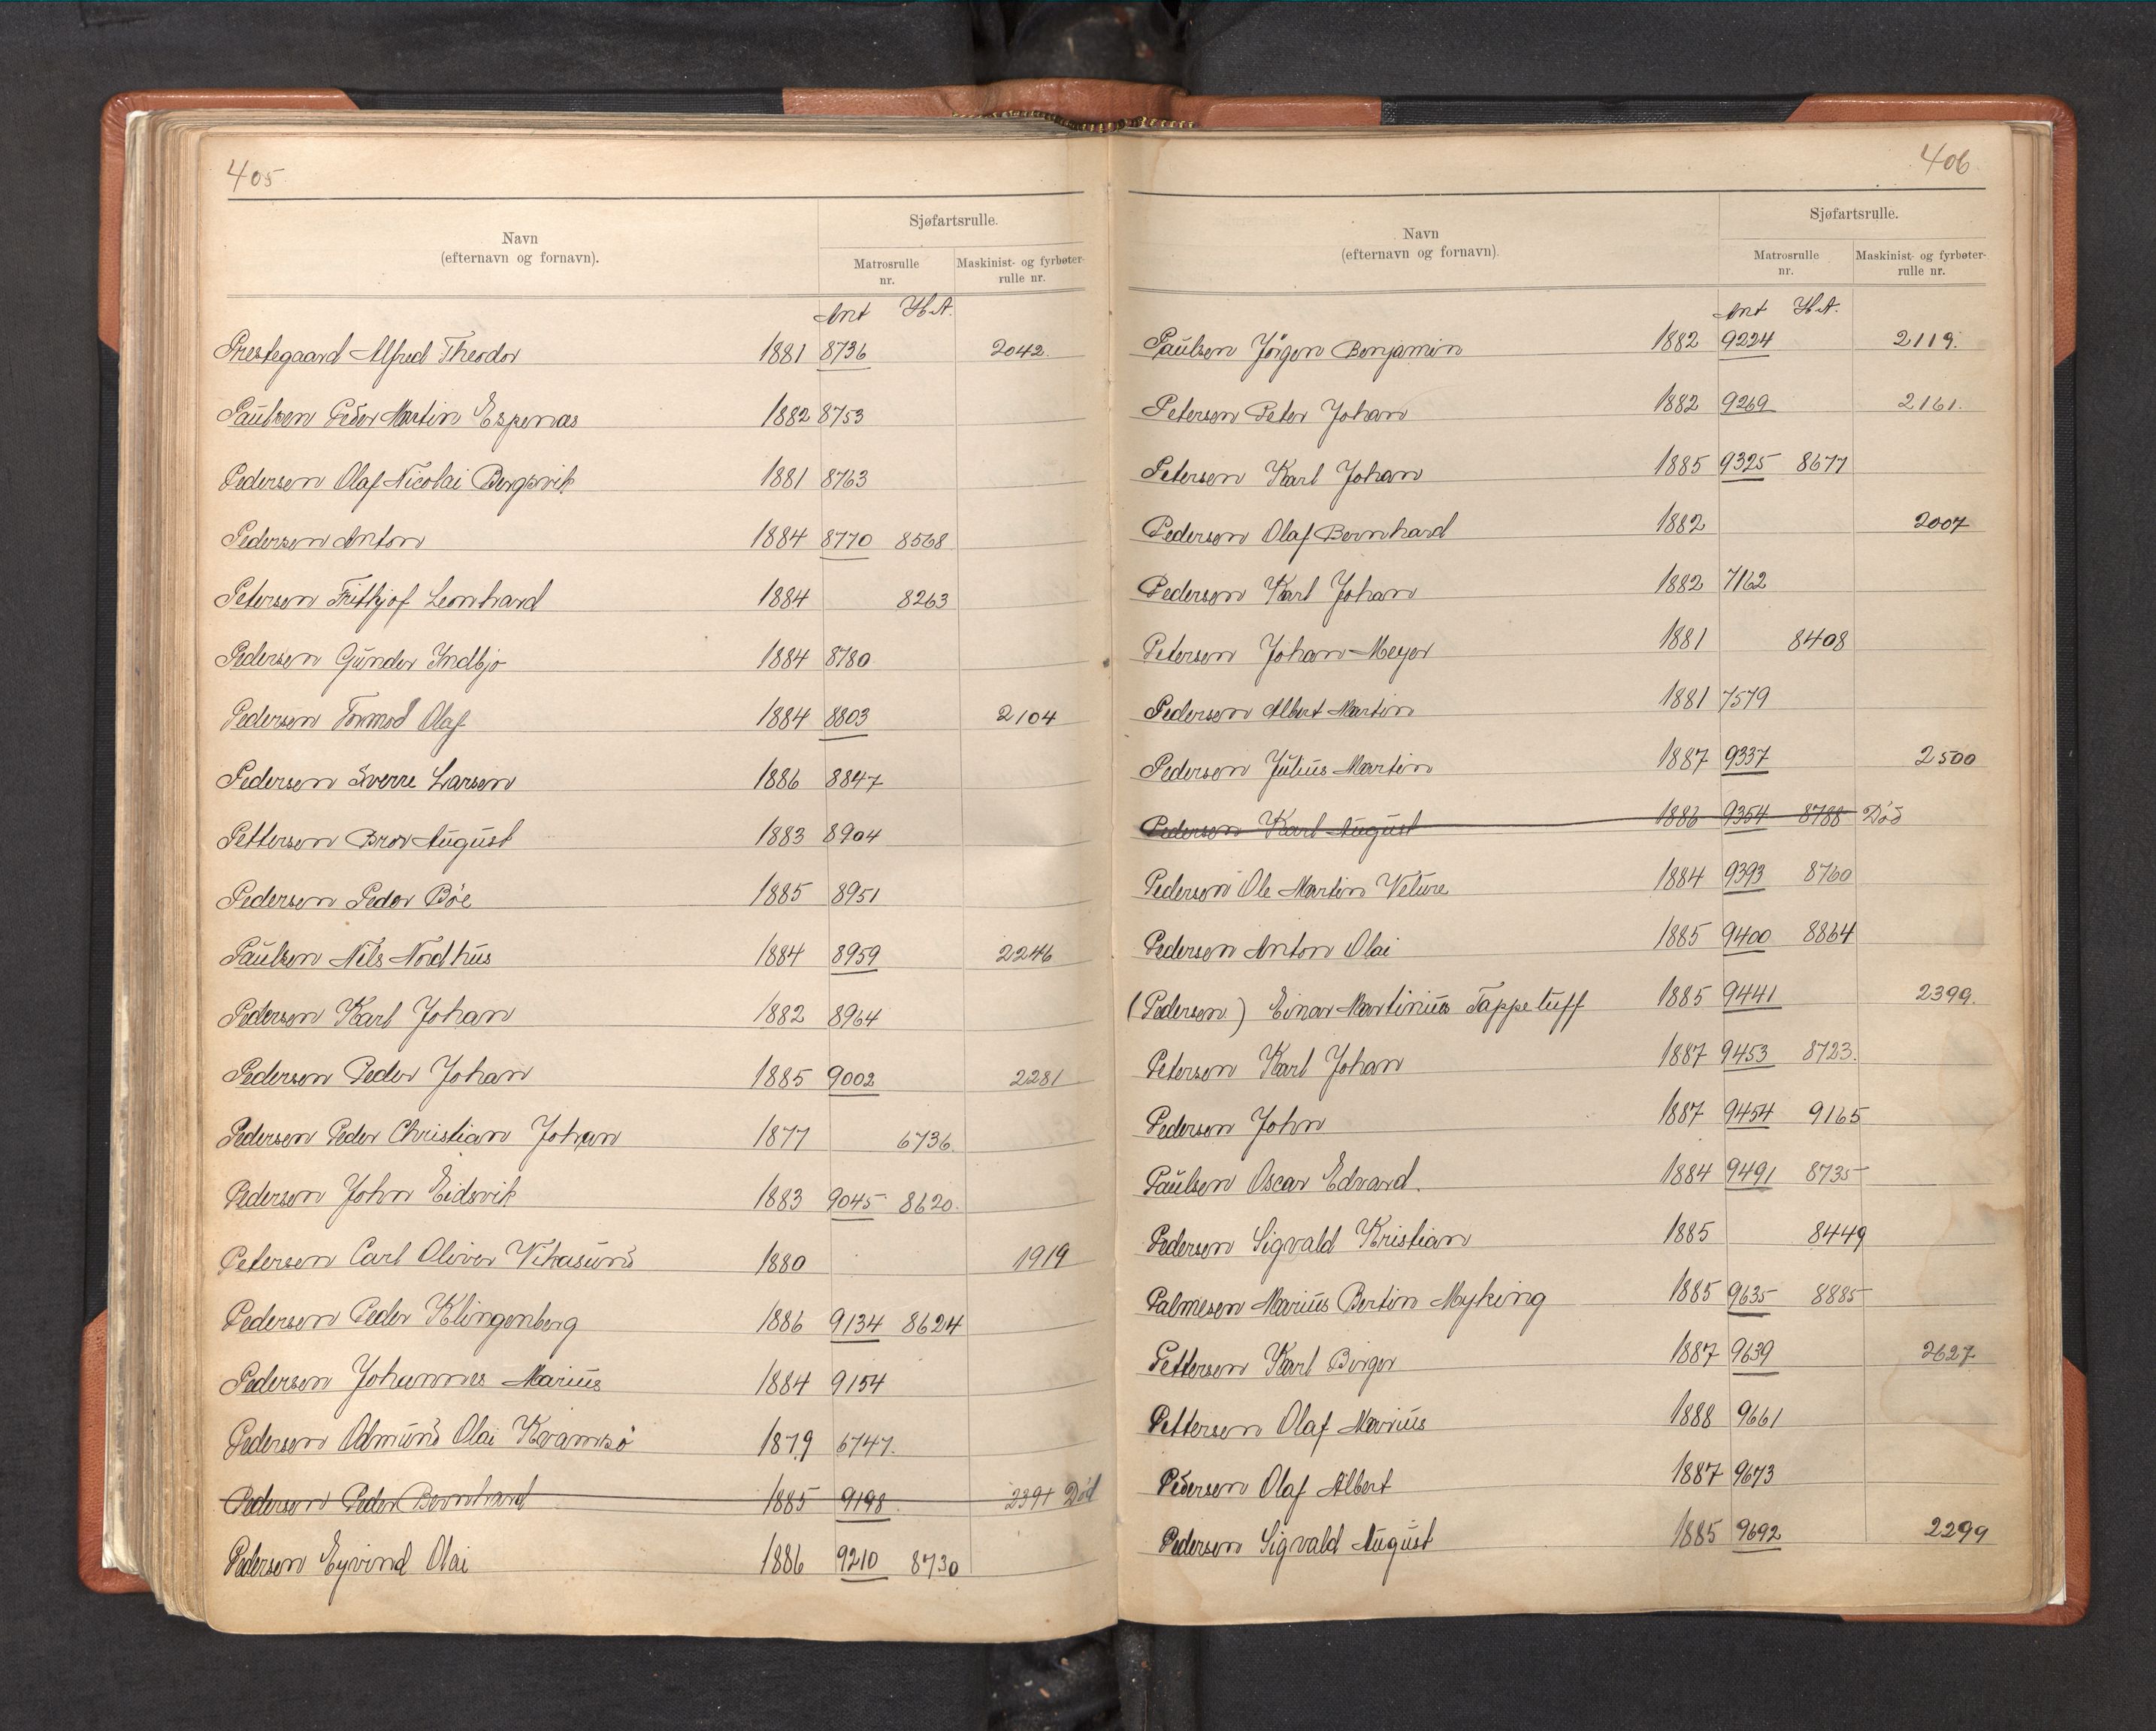 405
Sjøfartsrulle.
Navn
(efternavn og fornavn).
Matrosrulle
nr.
Maskinist- og fyrbøter-
rulle nr.
Ant H.A.
Prestegaard Alfred Theodor 1881 8736 2042.
Paulsen Peder Martin Espenæs 1882 8753
Pedersen Olaf Nicolai Bergsvik 1881 8763
Pedersen Anton 1884 8770 8568
Petersen Frithjof Leonhard 1884 8263
Pedersen Gunder Indbjo 1884 8780
Pedersen Tormod Olaf 1884 8803 2104
Pedersen Sverre Larsen 1886 8847
Pettersen Bror August 1883 8904
Pedersen Peder Böe 1885 8951
Paulsen Nils Nordhus 1884 8959 2246
Pedersen Karl Johan 1882 8964
Pedersen Peder Johan 1885 9002 2281
Pedersen Peder Christian Johan 1877 6736.
Pedersen John Eidsvik 1883 9045 8620.
Petersen Carl Oliver Vikasund 1880 1919
Pedersen Peder Klingenberg 1886 9134 8624
Pedersen Johannes Marius 1884 9154
Pedersen Odmund Olai Kvamsö 1879 6747.
Pedersen Peder Bernhard 1885 9198. 2391 Död
Pedersen Eyvind Olai 1886 9210 8730
406
Sjøfartsrulle.
Navn
(efternavn og fornavn).
Matrosrulle
nr.
Maskinist- og fyrbøter-
rulle nr.
Ant H.A.
Paulsen Jörgen Benjamin 1882 9224 2119.
Petersen Peter Johan 1882 9269 2161.
Petersen Karl Johan 1885 9325 8677
Pedersen Olaf Bernhard 1882 2007
Pedersen Karl Johan 1882 7162
Petersen Johan Meyer 1881 8408
Pedersen Albert Martin 1881 7579
Pedersen Julius Martin 1887 9337 2500
Pedersen Karl August 1886 9354 8788 Död
Pedersen Ole Martin Veture 1884 9393 8760
Pedersen Anton Olai 1885 9400 8864
(Pedersen) Einar Martinius Tappeluff 1885 9441 2399.
Petersen Karl Johan 1887 9453 8723.
Pedersen John 1887 9454 9165
Paulsen Oscar Edvard. 1884 9491 8735
Pedersen Sigvald Kristian 1885 8449
Palmesen Marius Bertin Myking 1885 9635 8885
Pettersen Karl Birger 1887 9639 2627
Pettersen Olaf Marius 1888 9661
Pedersen Olaf Albert 1887 9673
Pedersen Sigvald August 1885 9692 2299